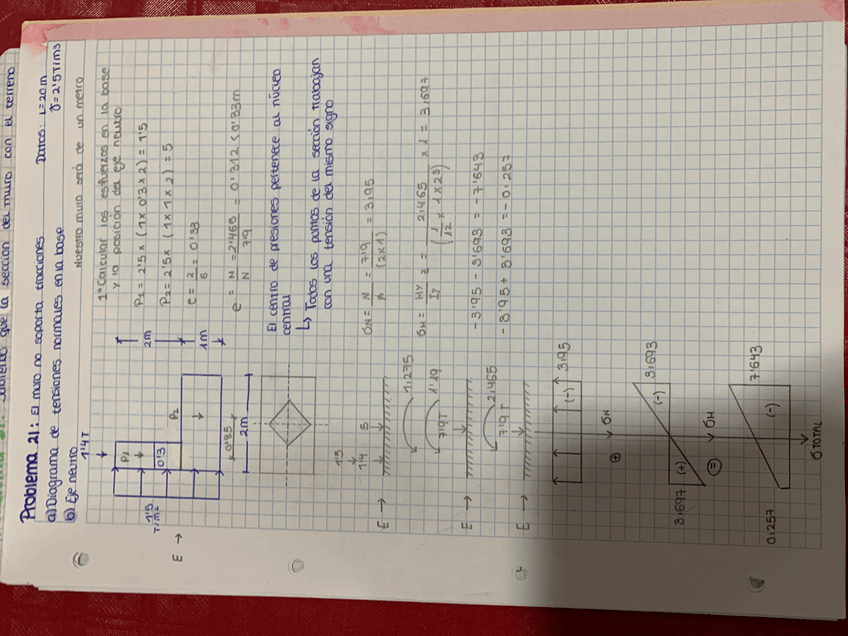 sabiendo que la sección del muro con el terreno
Problema 21: El muro no soporta tracciones
Datos: L=20m
a) Diagrama de tensiones normales en la base
γ=2'5T/m3
b) Eje neutro
Nuestro muro será de un metro
1º Calcular los esfuerzos en la base
y la posición del eje neutro
P1 = 2'5 x (1 x 0'3 x 2) = 1'5
P2 = 2'5 x (1 x 1 x 2) = 5
e = 2/6 = 0'33
e = M/N = 2'465/7'9 = 0'312 < 0'33m
1'4T
P1
0'3
P2
2m
1m
1'5
T/m2
E →
0'85
2m
El centro de presiones pertenece al núcleo
central
↳ Todos los puntos de la sección trabajan
con una tensión del mismo signo
1'5
1'4
5
E →
1,275
1'19
7'9T
E →
2,465
7'9T
E →
σN = N/A = 7'9/(2x1) = 3,95
σM = My/Iy z = 2,465/(1/12 x 1 x 2^3) x 1 = 3,697
-3,95 - 3'693 = -7'643
-3'95 + 3'693 = -0.257
3,95
(-)
σN
⊕
3,693
(-)
(+)
3,697
σM
=
7'643
(-)
0.257
σTOTAL